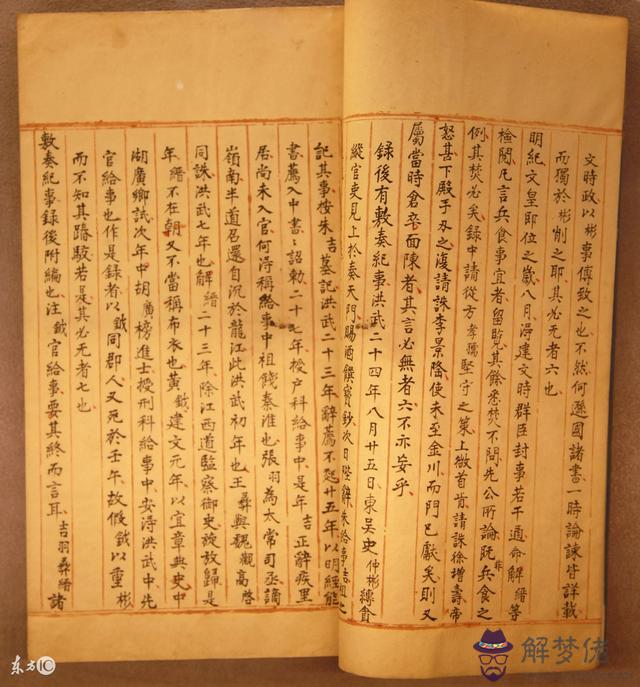 文時政以彬事傅致之也不然何遜國諸書一時論諫皆詳載
而獨於彬削之耶其必无者六也
明紀文皇即位之歲八月得建文時群臣封事若干通命解縉等
檢閱凡言兵食事宜者留覽其餘悉焚不問先公所論既非兵食之
例其焚必矣錄中請從方孝孺堅守之策上微首肯請誅徐增壽帝
怒甚下殿手刃之復請誅李景隆使未至金川而門已獻矣則又
屬當時倉卒面陳者其言必無者六不亦妄乎
錄後有敷奏紀事洪武二十四年八月廿五日東吳史仲彬縛貪
縱官吏見上於奏天門賜酒饌寶鈔次日陛辭朱給事吉祖之
記其事按朱吉墓記洪武二十三年辭薦不起廿五年以明經能
書薦入中書詔勅二十七年授户科給事中是年吉正辭疾里
居尚未入官何得稱給事中祖餞秦淮也張羽為太常司丞謫
嶺南半道召還自沉於龍江此洪武初年也王彝與魏觀高啓
同誅洪武七年也解縉二十三年除江西道監察御史旋放歸是
年縉不在朝又不當稱布衣也黃鉞建文元年以宜章典史中
湖廣鄉試次年中胡廣榜進士授刑科給事中安得洪武中先
官給事也作是錄者以鉞同郡人又死於壬午故假鉞以重彬
而不知其踳駁若是其必无者七也
敷奏紀事錄後附編也注鉞官給事要其終而言耳吉羽彝縉諸
解梦佬
东方IC